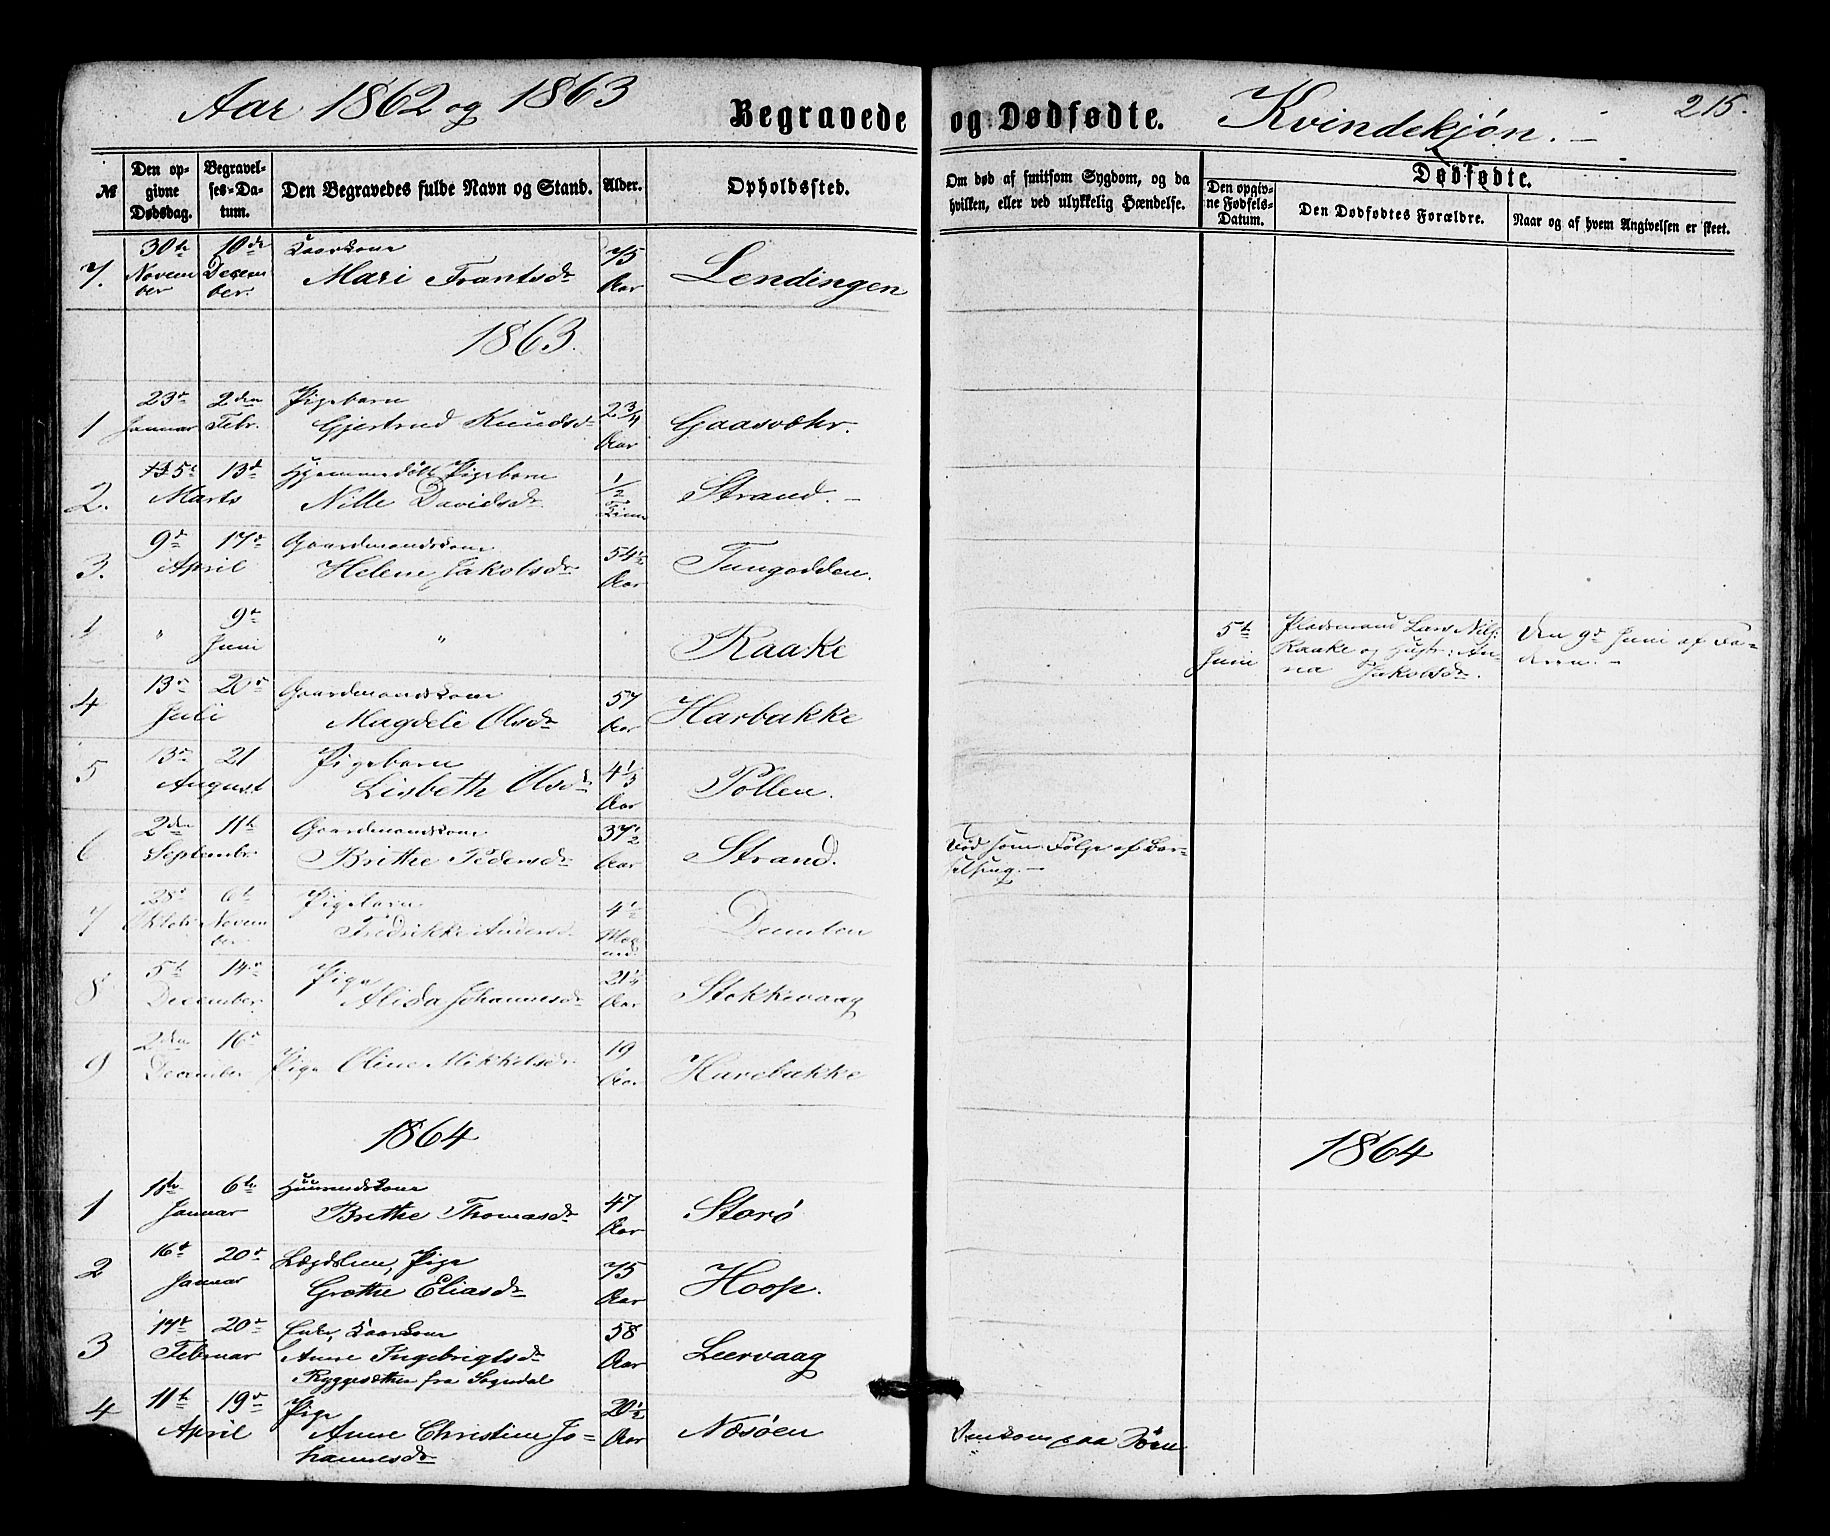 Aar 1862 og 1863 Begravede og Dødfødte. Kvindekjøn. 215.
№ Den opgivne Dødsdag. Begravelses-Datum. Den Begravedes fulde Navn og Stand. Alder. Opholdssted. Om død af smitsom Sygdom, og da hvilken, eller ved ulykkelig Hændelse. Dødfødte. Den opgivne Fødsels-Datum. Den Dødfødtes Forældre. Naar og af hvem Angivelsen er skeet.
7. 30te November 10de December. Kaarkone Mari Frantsdr 75 Aar Lendingen
1863.
1 23de Januar 2den Febr. Pigebarn Gjertrud Knudsdr 2 3/4 Aar Gaasvæhr.
2. 5te 13de Marts Hjemmedøbt Pigebarn Nille Davidsdr 1/2 Time Strand.
3. 9de 17de April Gaardmandskone Helene Jakobsdr 54 1/2 Aar Tungodden.
" 9de Juni " Raake 5te Juni Pladsmand Lars Nils: Raake og Hustr: Anna Jakobsdr. Den 9de Juni af Faderen.
4 13de 20de Juli Gaardmandskone Magdeli Olsdr 57 Aar Harbakke
5 13de 21 August Pigebarn Lisbeth Olsdr 4 1/3 Aar Pollen.
6 2den 11te Septembr. Gaardmandskone Brithe Pedersdr 37 1/2 Aar Strand. Død som Følge af Barselseng.
7 28de Oktob: 6te November Pigebarn Fredrikke Andersdr 4 1/2 Maaned Dumben
8 5te 14de December Pige Alida Johannesdr 21 1/4 Aar Stokkevaag
9 2den 16de December Pige Oline Mikkelsdr 19 Aar Harebakke
1864 1864
1 1ste 6te Januar Huusmandskone Brithe Thomasdr 47 Aar Storø
2 16de 20de Januar Lægdslem, Pige Grethe Eliasdr 75 Aar Hoop.
3 17de 20de Februar Enke, Kaarkone Anne Ingebrigtsdr Ryggesæther fra Sogndal 58 Aar Leervaag
4 11te 19de April Pige Anne Christine Johannesdr 20 1/2 Aar Næsøen Omkom paa Søen